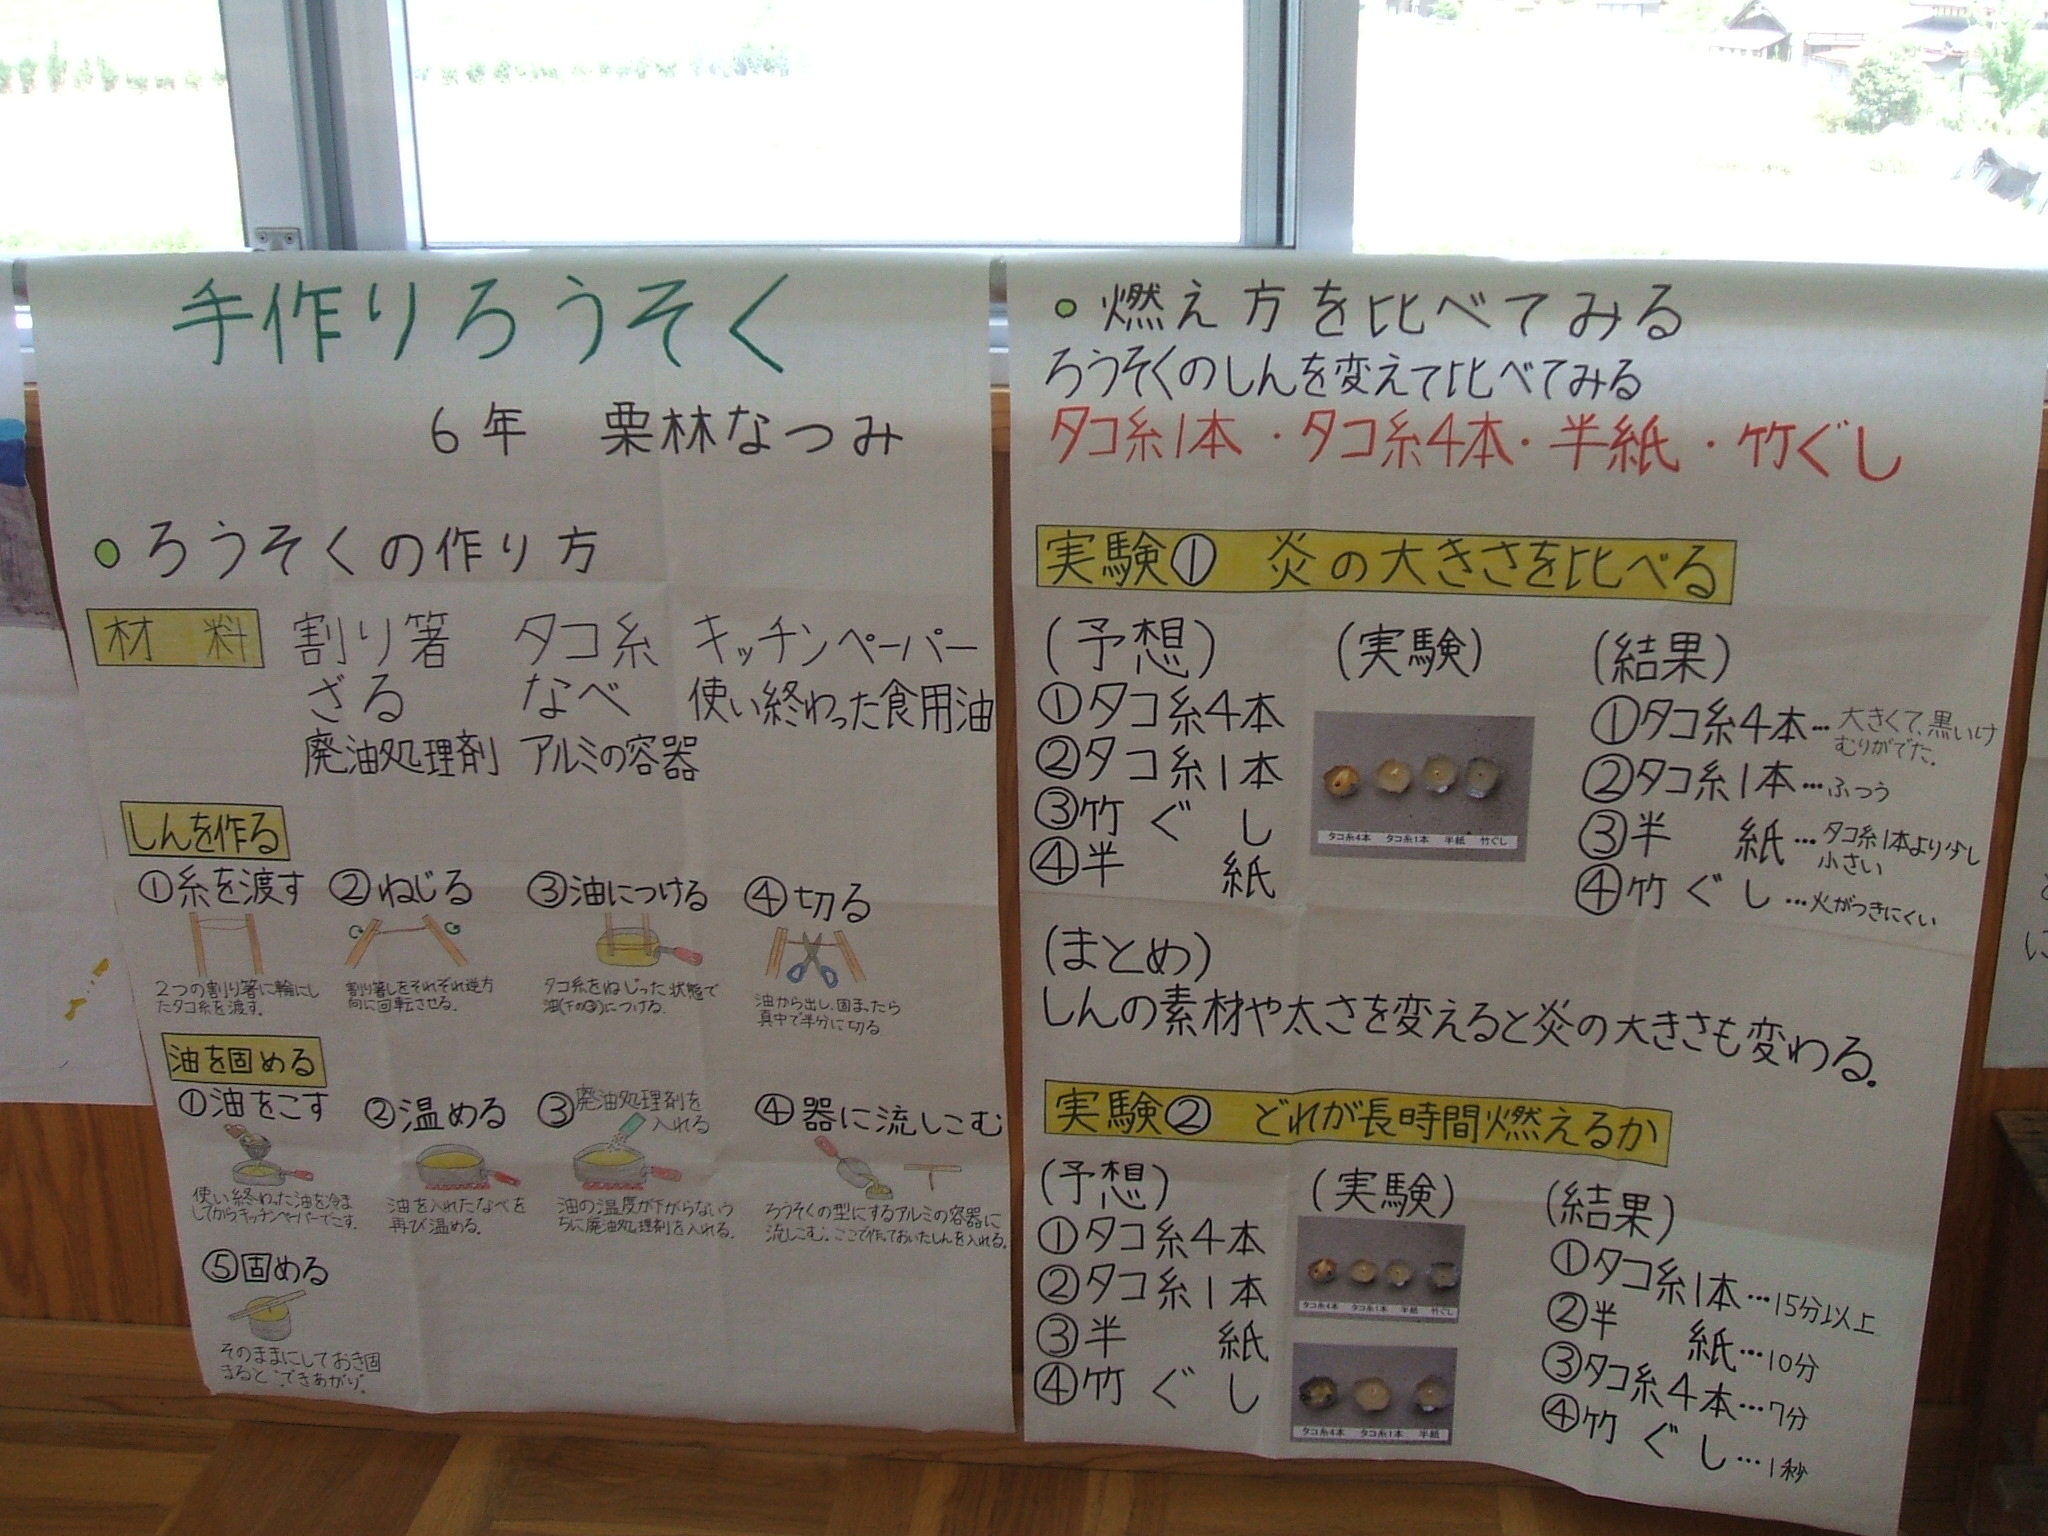 手作りろうそく
6年 栗林なつみ
ろうそくの作り方
材料 割り箸 タコ糸 キッチンペーパー
ざる なべ 使い終わった食用油
廃油処理剤 アルミの容器
しんを作る
①糸を渡す
2つの割り箸に輪にし
たタコ糸を渡す。
②ねじる
割り箸をそれぞれ逆方
向に回転させる。
③油につける
タコ糸をねじった状態で
油(下の③)につける。
④切る
油から出し、固まったら
真中で半分に切る
油を固める
①油をこす
使い終わった油を冷ま
してからキッチンペーパーでこす。
②温める
油を入れたなべを
再び温める。
③廃油処理剤を
入れる
油の温度が下がらないう
ちに廃油処理剤を入れる。
④器に流しこむ
ろうそくの型にするアルミの容器に
流しこむ。ここで作っておいたしんを入れる。
⑤固める
そのままにしておき固
まると、できあがり。
燃え方を比べてみる
ろうそくのしんを変えて比べてみる
タコ糸1本・タコ糸4本・半紙・竹ぐし
実験① 炎の大きさを比べる
(予想)
①タコ糸4本
②タコ糸1本
③竹ぐし
④半紙
(実験)
タコ糸4本 タコ糸1本 半紙 竹ぐし
(結果)
①タコ糸4本…大きくて、黒いけ
むりがでた。
②タコ糸1本…ふつう
③半紙…タコ糸1本より少し
小さい
④竹ぐし…火がつきにくい
(まとめ)
しんの素材や太さを変えると炎の大きさも変わる。
実験② どれが長時間燃えるか
(予想)
①タコ糸4本
②タコ糸1本
③半紙
④竹ぐし
(実験)
タコ糸4本 タコ糸1本 半紙 竹ぐし
タコ糸4本 タコ糸1本 半紙
(結果)
①タコ糸1本…15分以上
②半紙…10分
③タコ糸4本…7分
④竹ぐし…1秒